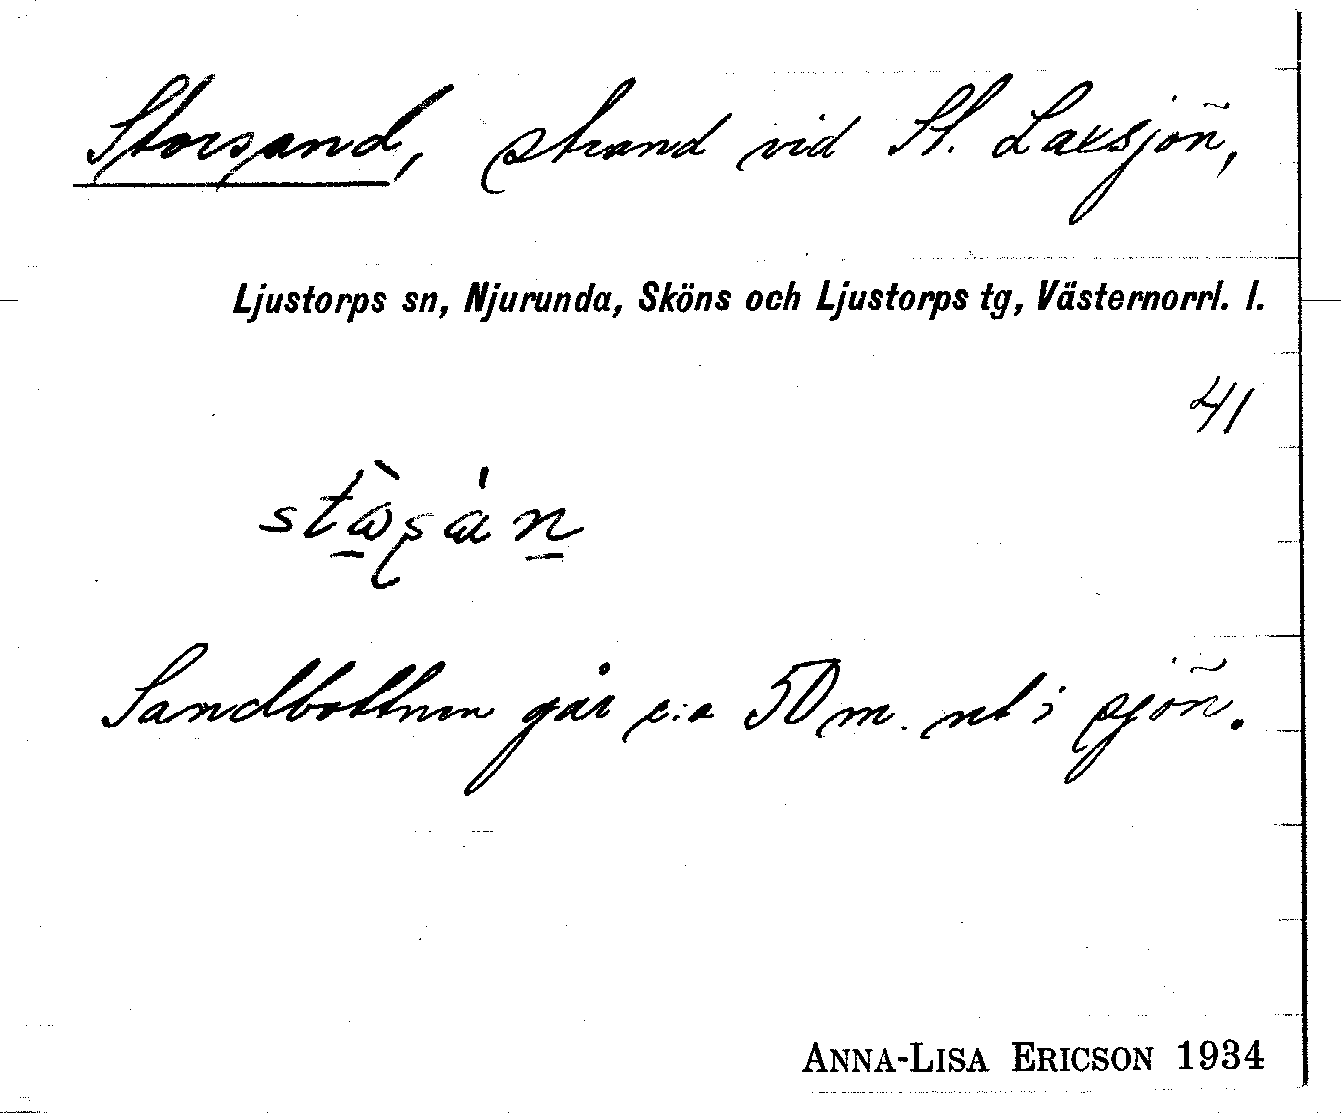 Storsand, strand vid St. Laxsjön,
Ljustorps sn, Njurunda, Sköns och Ljustorps tg, Västernorrl. l.
41
Sandbottnen går c:a 50 m. ut i sjön.
ANNA-LISA ERICSON 1934